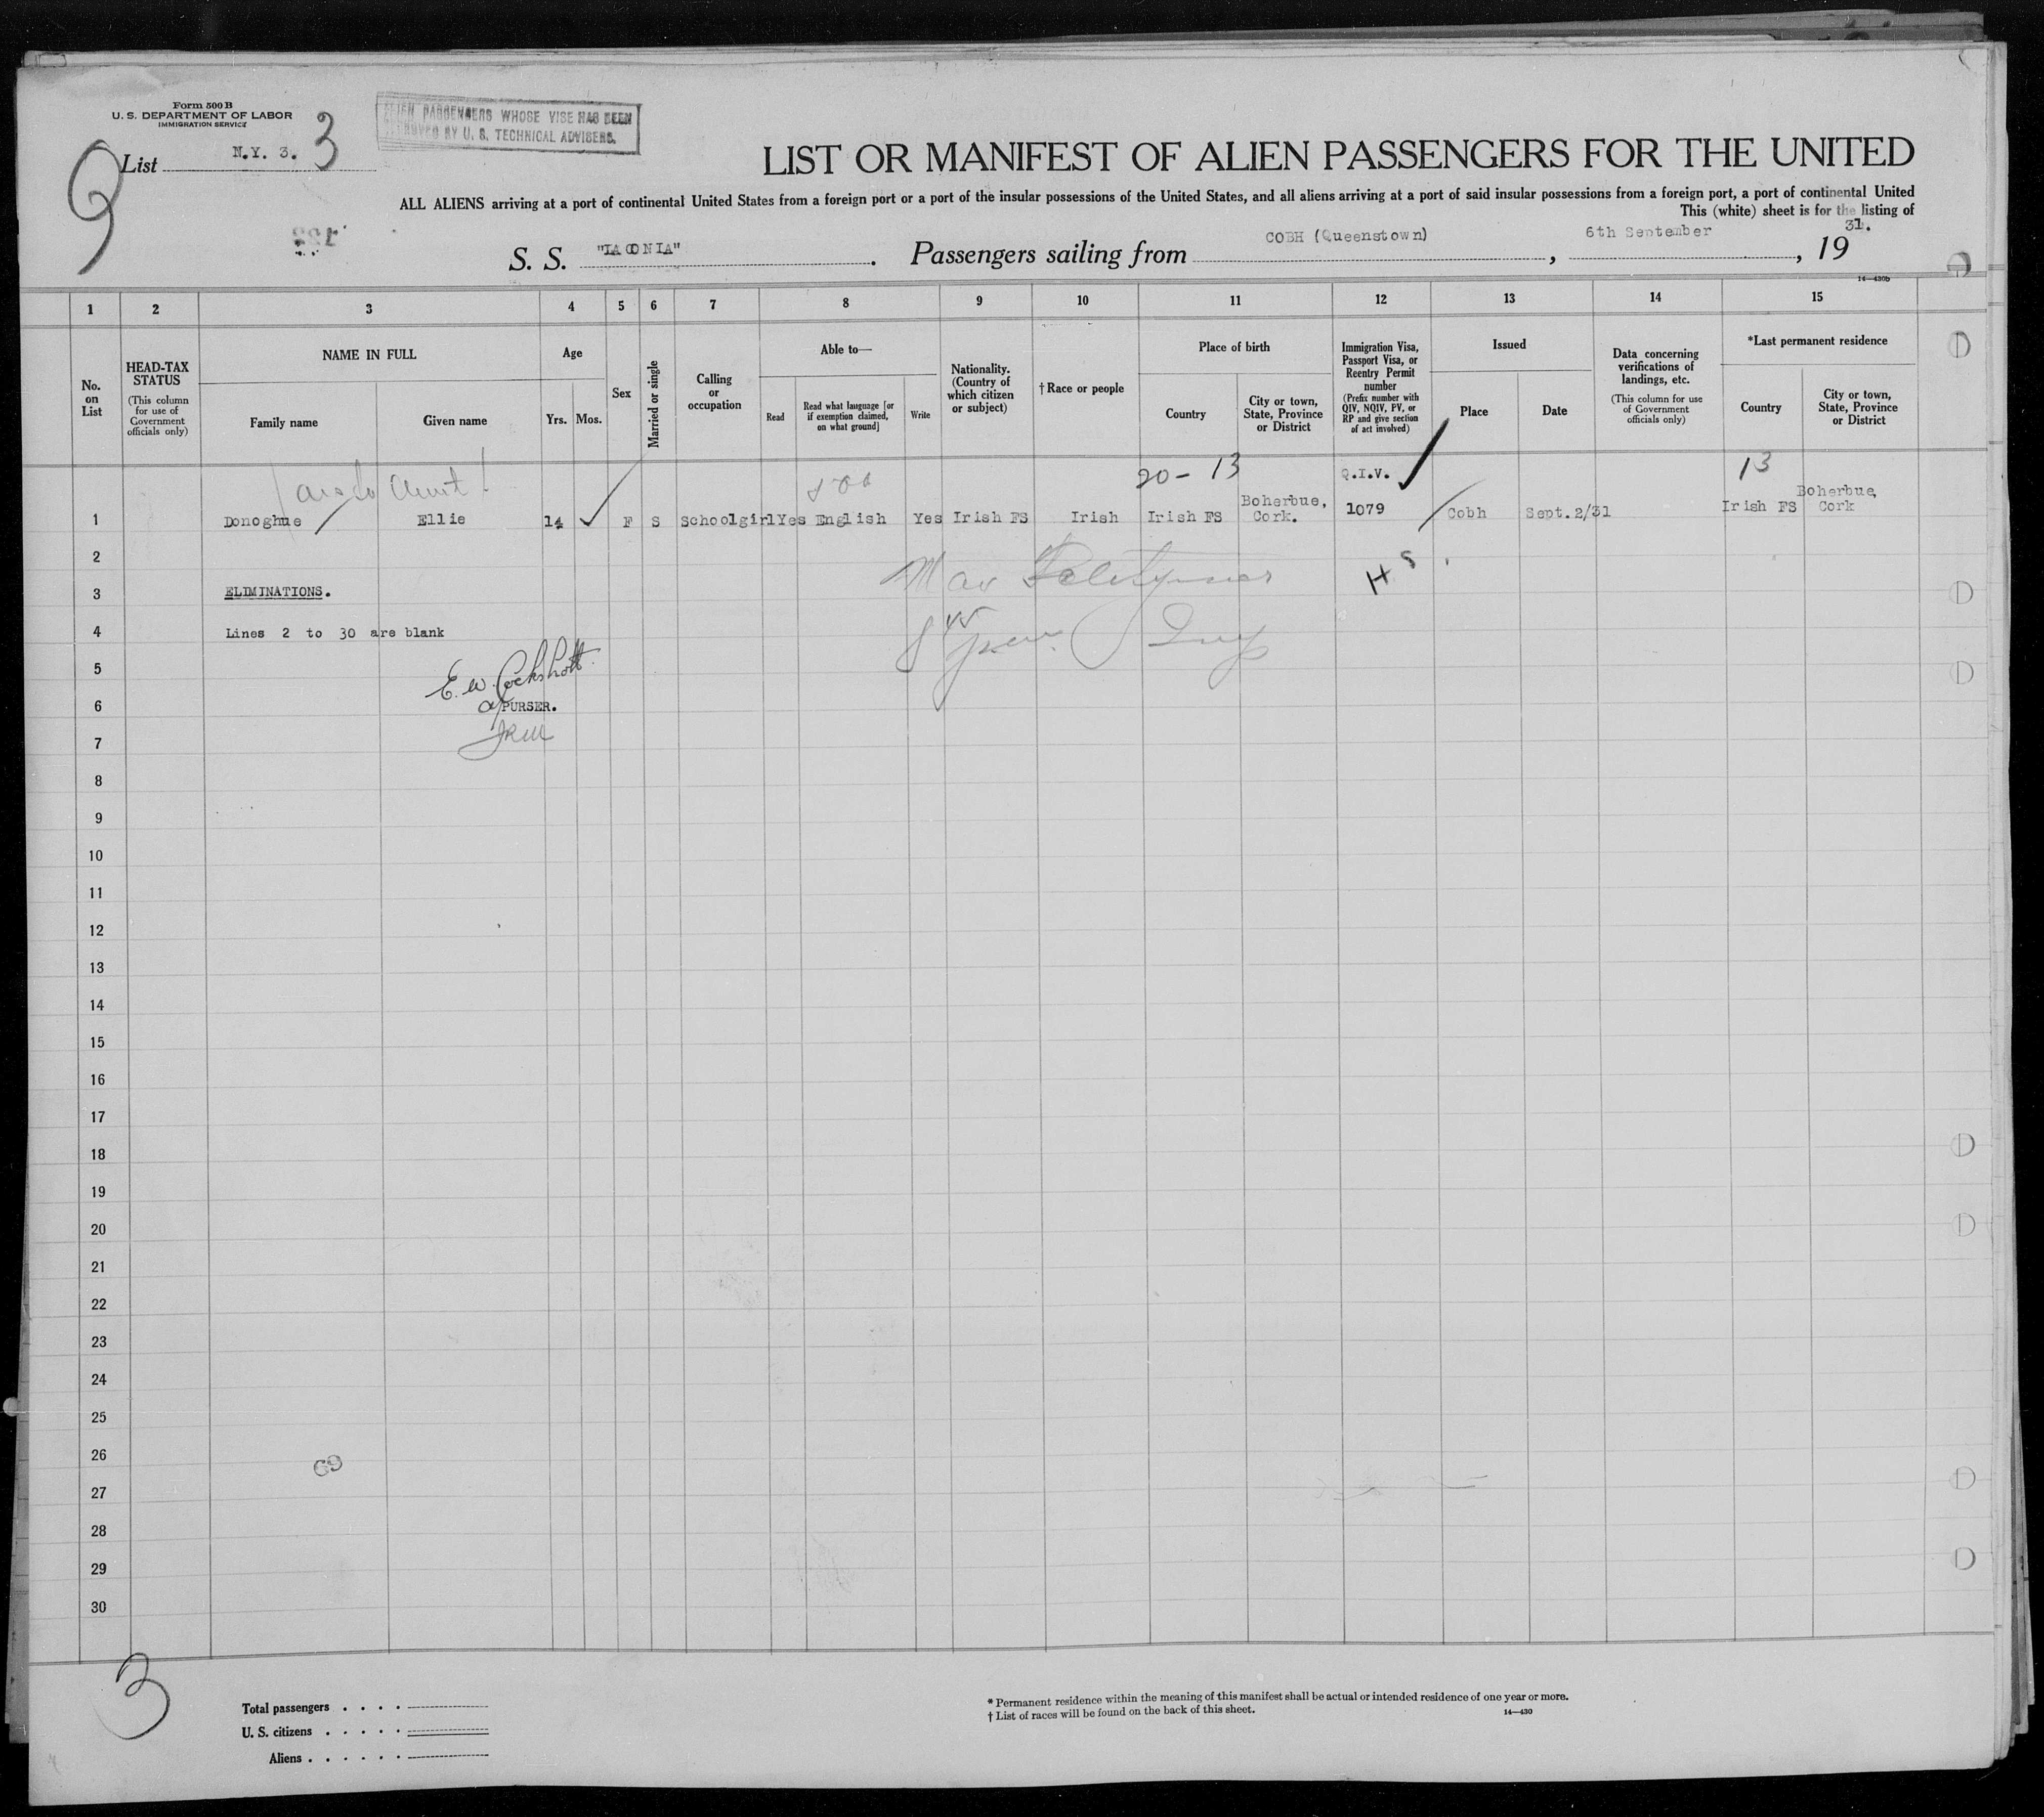 Form 500 B
U. S. DEPARTMENT OF LABOR
IMMIGRATION SERVICE
ALIEN PASSENGERS WHOSE VISE HAS BEEN
APPROVED BY U. S. TECHNICAL ADVISERS.
List N.Y. 3. 3
9
LIST OR MANIFEST OF ALIEN PASSENGERS FOR THE UNITED
ALL ALIENS arriving at a port of continental United States from a foreign port or a port of the insular possessions of the United States, and all aliens arriving at a port of said insular possessions from a foreign port, a port of continental United
This (white) sheet is for the listing of
S. S. "LACONIA". Passengers sailing from COBH (Queenstown), 6th September, 19 31.
14—430b
1 2 3 4 5 6 7 8 9 10 11 12 13 14 15
No. on List
HEAD-TAX STATUS
(This column for use of Government officials only)
NAME IN FULL
Family name
Given name
Age
Yrs.
Mos.
Sex
Married or single
Calling or occupation
Able to—
Read
Read what language [or if exemption claimed, on what ground]
Write
Nationality. (Country of which citizen or subject)
† Race or people
Place of birth
Country
City or town, State, Province or District
Immigration Visa, Passport Visa, or Reentry Permit number
(Prefix number with QIV, NQIV, PV, or RP and give section of act involved)
Issued
Place
Date
Data concerning verifications of landings, etc.
(This column for use of Government officials only)
*Last permanent residence
Country
City or town, State, Province or District
Aunt
20 - 13
Q.I.V.
13
1 Donoghue Ellie 14 ✓ F S Schoolgirl Yes English Yes Irish FS Irish Irish FS Boherbue, Cork. 1079 Cobh Sept. 2/31 Irish FS Boherbue, Cork
2
3 ELIMINATIONS.
4 Lines 2 to 30 are blank
5 E. W. Cockshott
6 PURSER.
7
8
9
10
11
12
13
14
15
16
17
18
19
20
21
22
23
24
25
26
27
28
29
30
69
3
Total passengers . . . .
U. S. citizens . . . . .
Aliens . . . . . .
* Permanent residence within the meaning of this manifest shall be actual or intended residence of one year or more.
† List of races will be found on the back of this sheet.
14—430